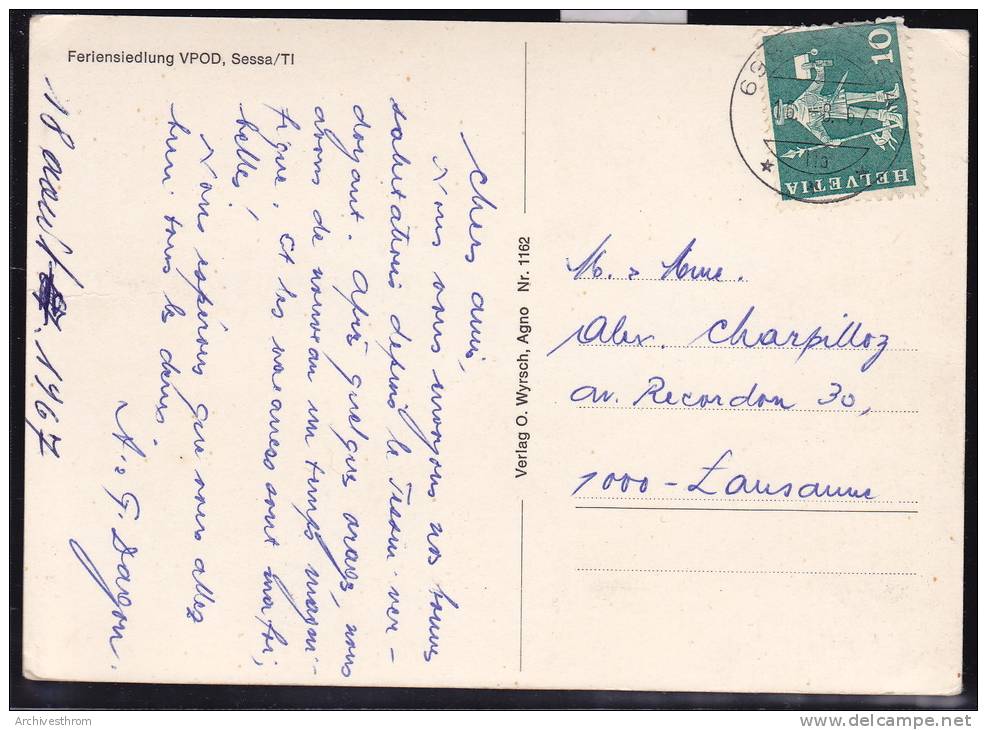 Feriensiedlung VPOD, Sessa/TI
18 août 1967
Chers amis,
Nous vous envoyons nos bonnes
salutations depuis le Tessin ver-
doyant. Après quelques orages, nous
avons de nouveau un temps magni-
fique. Et les vacances sont ma foi,
belles!
Nous espérons que vous allez
bien tous les deux.
A. & F. Dagon.
Verlag O. Wyrsch, Agno Nr. 1162
HELVETIA
10
M. & Mme.
Alex. Charpilloz
av. Recordon 30,
1000 - Lausanne
Archivesthrom
delcampe.net